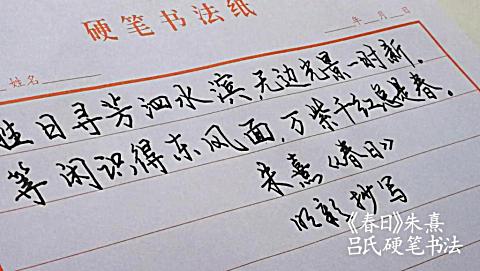 硬笔书法纸
年 月 日
姓名
胜日寻芳泗水滨,无边光景一时新。
等闲识得东风面,万紫千红总是春。
朱熹《春日》
抄写
《春日》朱熹
吕氏硬笔书法